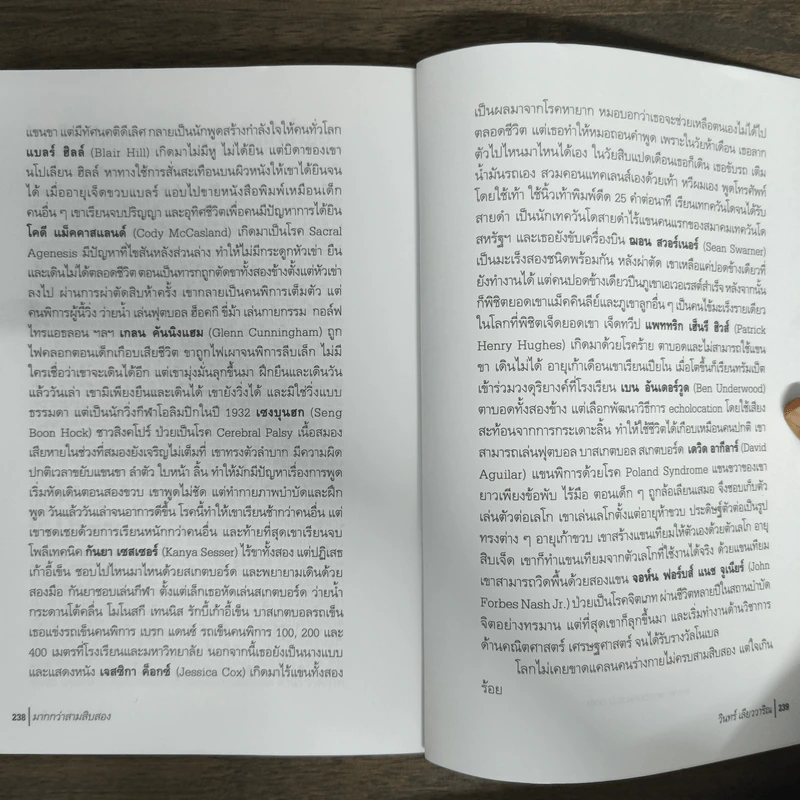 แขนขา แต่มีทัศนคติดีเลิศ กลายเป็นนักพูดสร้างกำลังใจให้คนทั่วโลก
แบลร์ ฮิลล์ (Blair Hill) เกิดมาไม่มีหู ไม่ได้ยิน แต่บิดาของเขา
นโปเลียน ฮิลล์ หาทางใช้การสั่นสะเทือนบนผิวหนังให้เขาได้ยินจน
ได้ เมื่ออายุเจ็ดขวบแบลร์ แอบไปขายหนังสือพิมพ์เหมือนเด็ก
คนอื่น ๆ เขาเรียนจบปริญญา และอุทิศชีวิตเพื่อคนมีปัญหาการได้ยิน
โคดี แม็คคาสแลนด์ (Cody McCasland) เกิดมาเป็นโรค Sacral
Agenesis มีปัญหาที่ไขสันหลังส่วนล่าง ทำให้ไม่มีกระดูกหัวเข่า ยืน
และเดินไม่ได้ตลอดชีวิต ตอนเป็นทารกถูกตัดขาทั้งสองข้างตั้งแต่หัวเข่า
ลงไป ผ่านการผ่าตัดสิบห้าครั้ง เขากลายเป็นคนพิการเต็มตัว แต่
คนพิการผู้นี้วิ่ง ว่ายน้ำ เล่นฟุตบอล ฮ็อคกี ขี่ม้า เล่นกายกรรม กอล์ฟ
ไทรแอธลอน ฯลฯ เกลน คันนิงแฮม (Glenn Cunningham) ถูก
ไฟคลอกตอนเด็กเกือบเสียชีวิต ขาถูกไฟเผาจนพิการลีบเล็ก ไม่มี
ใครเชื่อว่าเขาจะเดินได้อีก แต่เขามุ่งมั่นลุกขึ้นมา ฝึกยืนและเดินวัน
แล้ววันเล่า เขามิเพียงยืนและเดินได้ เขายังวิ่งได้ และมิใช่วิ่งแบบ
ธรรมดา แต่เป็นนักวิ่งกีฬาโอลิมปิกในปี 1932 เซงบุนฮก (Seng
Boon Hock) ชาวสิงคโปร์ ป่วยเป็นโรค Cerebral Palsy เนื้อสมอง
เสียหายในช่วงที่สมองยังเจริญไม่เต็มที่ เขาทรงตัวลำบาก มีความผิด
ปกติเวลาขยับแขนขา ลำตัว ใบหน้า ลิ้น ทำให้มักมีปัญหาเรื่องการพูด
เริ่มหัดเดินตอนสองขวบ เขาพูดไม่ชัด แต่ทำกายภาพบำบัดและฝึก
พูด วันแล้ววันเล่าจนอาการดีขึ้น โรคนี้ทำให้เขาเรียนช้ากว่าคนอื่น แต่
เขาชดเชยด้วยการเรียนหนักกว่าคนอื่น และท้ายที่สุดเขาเรียนจบ
โพลีเทคนิค กันยา เซสเซอร์ (Kanya Sesser) ไร้ขาทั้งสอง แต่ปฏิเสธ
เก้าอี้เข็น ชอบไปไหนมาไหนด้วยสเกตบอร์ด และพยายามเดินด้วย
สองมือ กันยาชอบเล่นกีฬา ตั้งแต่เล็กเธอหัดเล่นสเกตบอร์ด ว่ายน้ำ
กระดานโต้คลื่น โมโนสกี เทนนิส รักบี้เก้าอี้เข็น บาสเกตบอลรถเข็น
เธอแข่งรถเข็นคนพิการ เบรก แดนซ์ รถเข็นคนพิการ 100, 200 และ
400 เมตรที่โรงเรียนและมหาวิทยาลัย นอกจากนี้เธอยังเป็นนางแบบ
และแสดงหนัง เจสซิกา ค็อกซ์ (Jessica Cox) เกิดมาไร้แขนทั้งสอง
238 มากกว่าสามสิบสอง
เป็นผลมาจากโรคหายาก หมอบอกว่าเธอจะช่วยเหลือตนเองไม่ได้ไป
ตลอดชีวิต แต่เธอทำให้หมอถอนคำพูด เพราะในวัยห้าเดือน เธอลาก
ตัวไปไหนมาไหนได้เอง ในวัยสิบแปดเดือนเธอก็เดิน เธอขับรถ เติม
น้ำมันรถเอง สวมคอนแทคเลนส์เองด้วยเท้า หวีผมเอง พูดโทรศัพท์
โดยใช้เท้า ใช้นิ้วเท้าพิมพ์ดีด 25 คำต่อนาที เรียนเทควันโดจนได้รับ
สายดำ เป็นนักเทควันโดสายดำไร้แขนคนแรกของสมาคมเทควันโด
สหรัฐฯ และเธอยังขับเครื่องบิน ฌอน สวอร์เนอร์ (Sean Swarner)
เป็นมะเร็งสองชนิดพร้อมกัน หลังผ่าตัด เขาเหลือแค่ปอดข้างเดียวที่
ยังทำงานได้ แต่คนปอดข้างเดียวปีนภูเขาเอเวอเรสต์สำเร็จ หลังจากนั้น
ก็พิชิตยอดเขาแม็คคินลีย์และภูเขาลูกอื่น ๆ เป็นคนไข้มะเร็งรายเดียว
ในโลกที่พิชิตเจ็ดยอดเขา เจ็ดทวีป แพททริก เฮ็นรี ฮิวส์ (Patrick
Henry Hughes) เกิดมาด้วยโรคร้าย ตาบอดและไม่สามารถใช้แขน
ขา เดินไม่ได้ อายุเก้าเดือนเขาเรียนเปียโน เมื่อโตขึ้นก็เรียนทรัมเป็ต
เข้าร่วมวงดุริยางค์ที่โรงเรียน เบน อันเดอร์วูด (Ben Underwood)
ตาบอดทั้งสองข้าง แต่เลือกพัฒนาวิธีการ echolocation โดยใช้เสียง
สะท้อนจากการกระเดาะลิ้น ทำให้ใช้ชีวิตได้เกือบเหมือนคนปกติ เขา
สามารถเล่นฟุตบอล บาสเกตบอล สเกตบอร์ด เดวิด อากีลาร์ (David
Aguilar) แขนพิการด้วยโรค Poland Syndrome แขนขวาของเขา
ยาวเพียงข้อพับ ไร้มือ ตอนเด็ก ๆ ถูกล้อเลียนเสมอ จึงชอบเก็บตัว
เล่นตัวต่อเลโก เขาเล่นเลโกตั้งแต่อายุห้าขวบ ประดิษฐ์ตัวต่อเป็นรูป
ทรงต่าง ๆ อายุเก้าขวบ เขาสร้างแขนเทียมให้ตัวเองด้วยตัวเลโก อายุ
สิบเจ็ด เขาก็ทำแขนเทียมจากตัวเลโกที่ใช้งานได้จริง ด้วยแขนเทียม
เขาสามารถวิดพื้นด้วยสองแขน จอห์น ฟอร์บส์ แนช จูเนียร์ (John
Forbes Nash Jr.) ป่วยเป็นโรคจิตเภท ผ่านชีวิตหลายปีในสถานบำบัด
จิตอย่างทรมาน แต่ที่สุดเขาก็ลุกขึ้นมา และเริ่มทำงานด้านวิชาการ
ด้านคณิตศาสตร์ เศรษฐศาสตร์ จนได้รับรางวัลโนเบล
โลกไม่เคยขาดแคลนคนร่างกายไม่ครบสามสิบสอง แต่ใจเกิน
ร้อย
วินทร์ เลียววาริณ 239